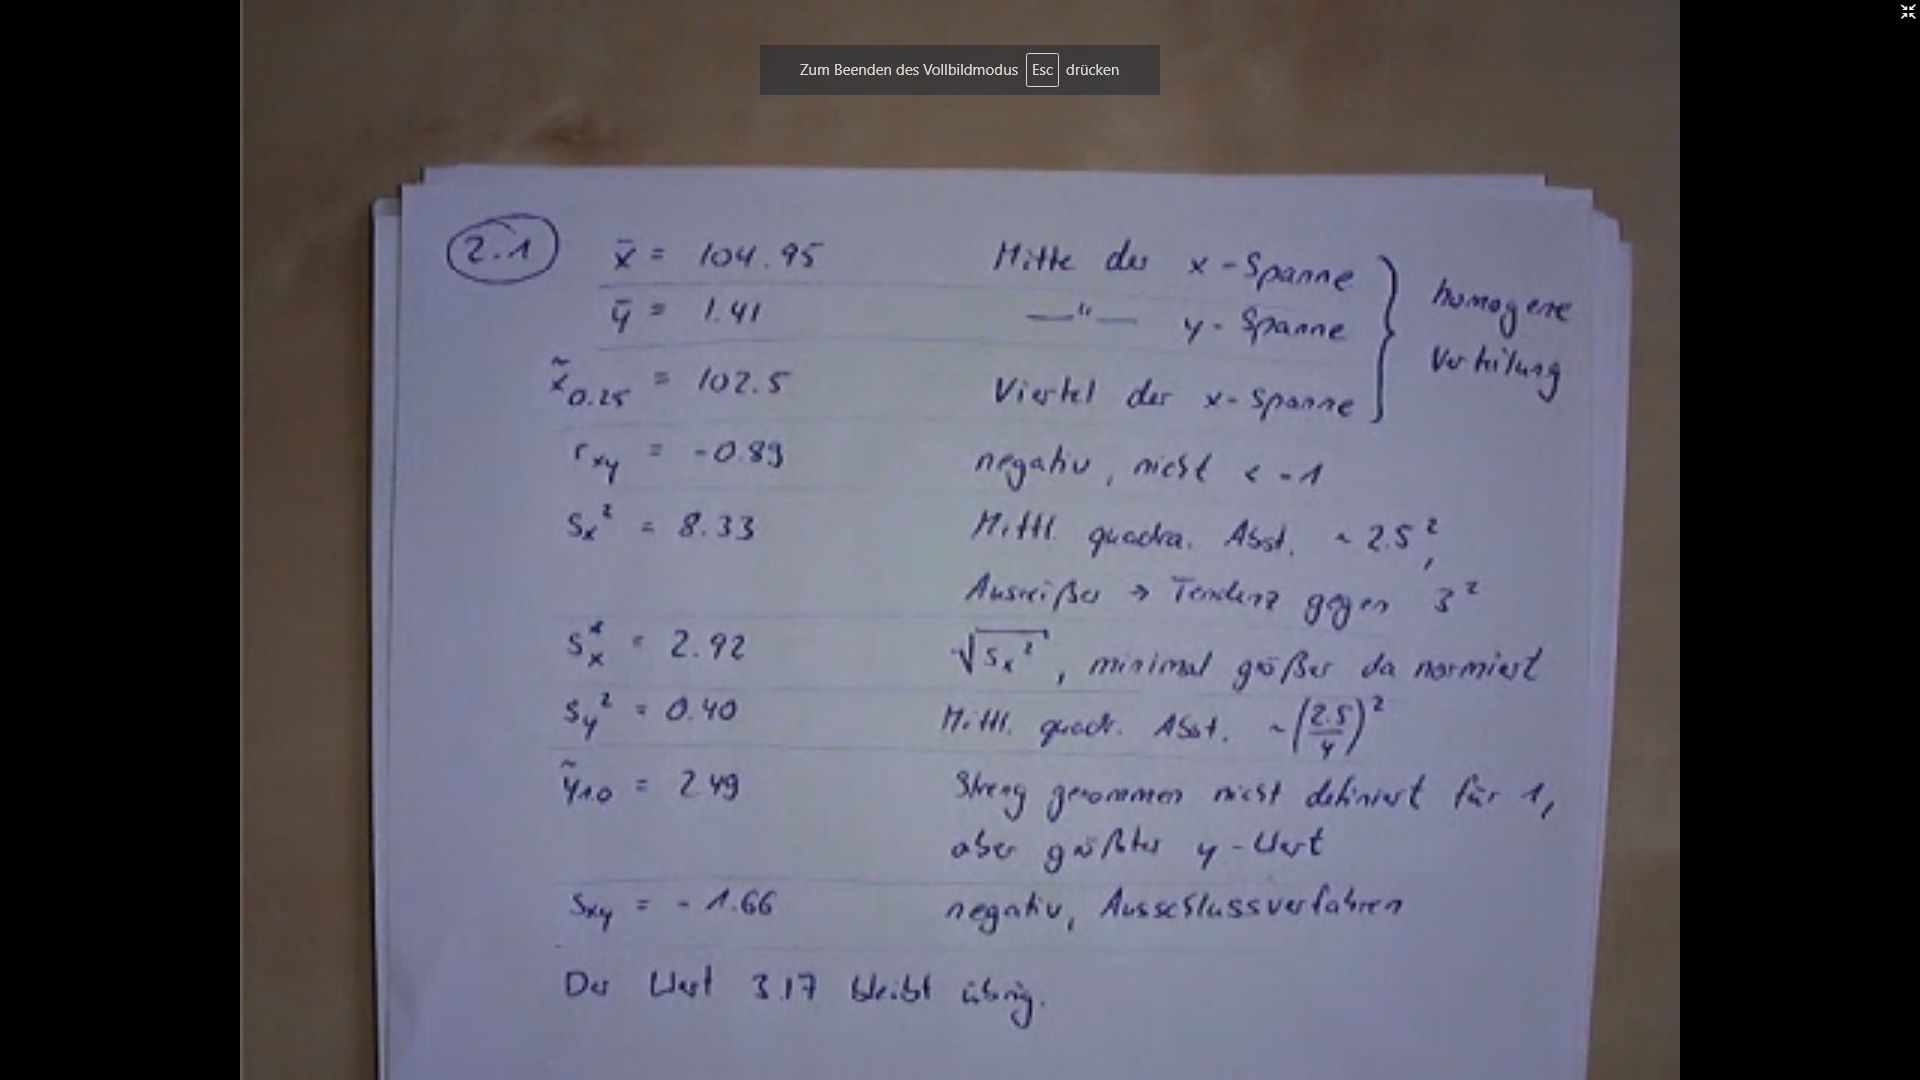 Zum Beenden des Vollbildmodus Esc drücken
2.1 x̄ = 104.95 Mitte der x-Spanne
ȳ = 1.41 —"— y-Spanne
homogene
Verteilung
x̃0.25 = 102.5 Viertel der x-Spanne
rxy = -0.89 negativ, nicht < -1
sx² = 8.33 Mittl. quadra. Abst. ~ 2.5²,
Ausreißer → Tendenz gegen 3²
sx* = 2.92 √sx², minimal größer da normiert
sy² = 0.40 Mittl. quadr. Abst. ~ (2.5/4)²
ỹ1.0 = 2.49 Streng genommen nicht definiert für 1,
aber größter y-Wert
sxy = -1.66 negativ, Ausschlussverfahren
Der Wert 3.17 bleibt übrig.